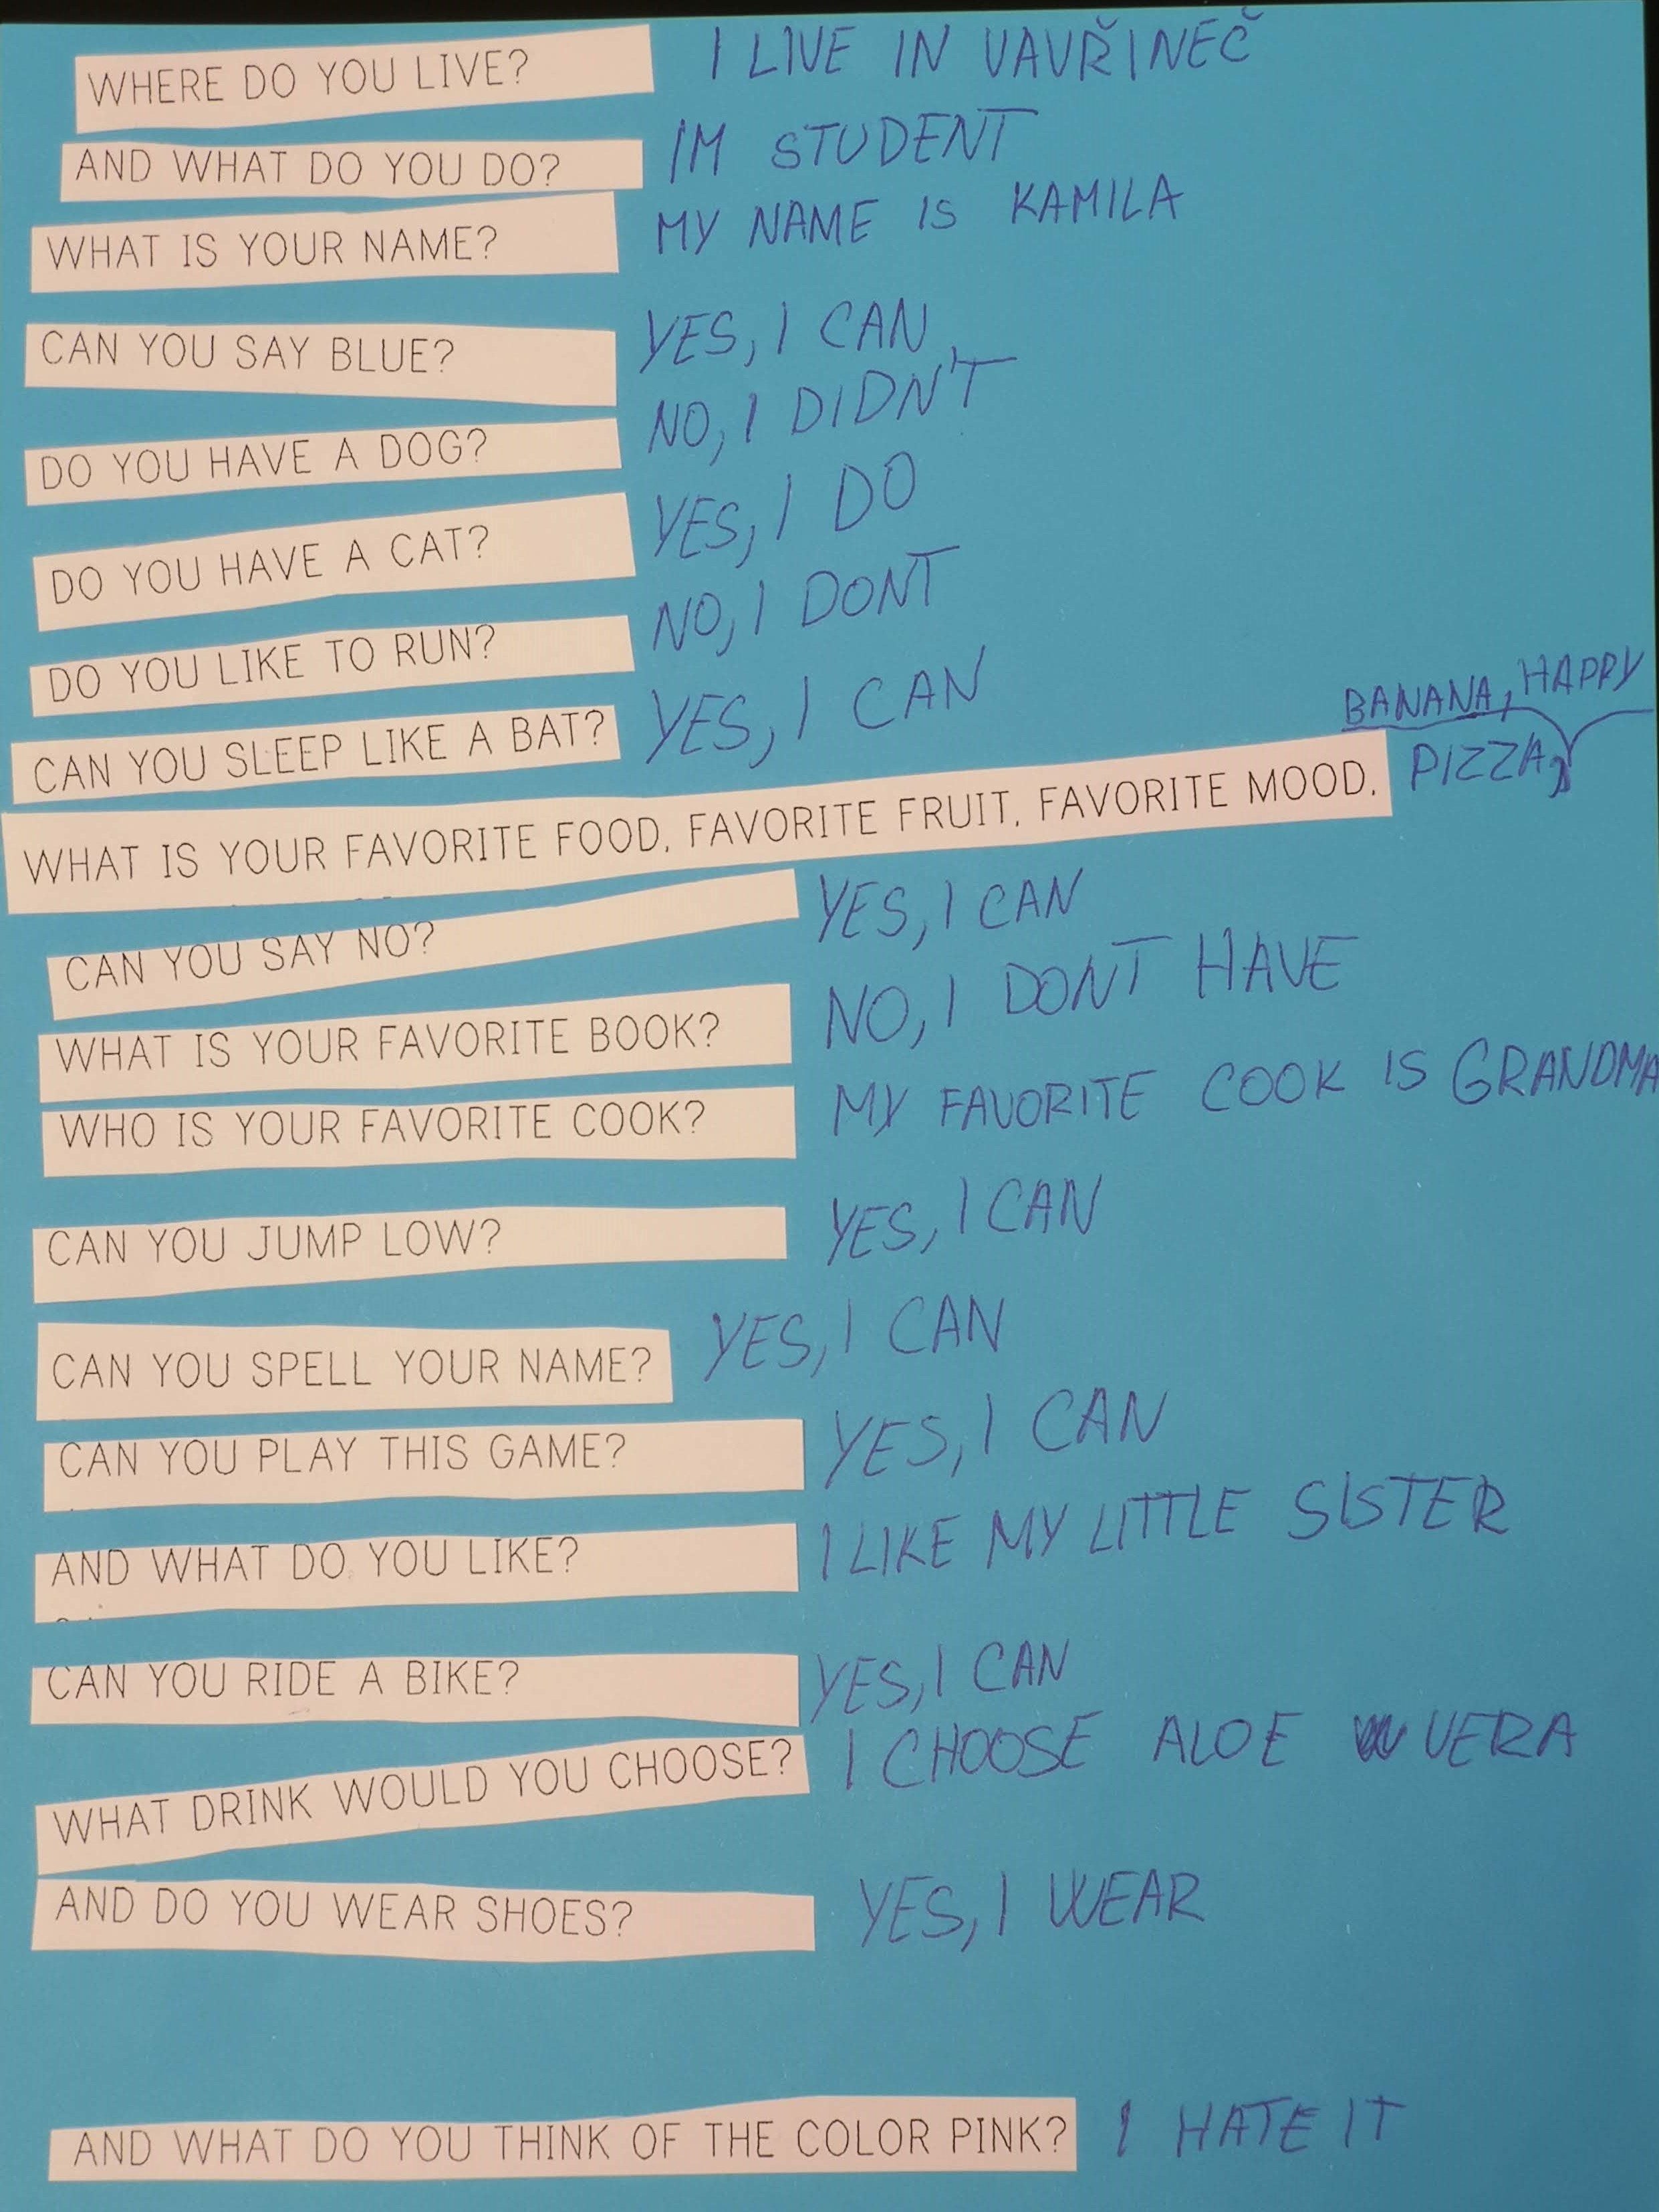 WHERE DO YOU LIVE? I LIVE IN VAVŘINEČ
AND WHAT DO YOU DO? IM STUDENT
WHAT IS YOUR NAME? MY NAME IS KAMILA
CAN YOU SAY BLUE? YES, I CAN
DO YOU HAVE A DOG? NO, I DIDN'T
DO YOU HAVE A CAT? YES, I DO
DO YOU LIKE TO RUN? NO, I DONT
CAN YOU SLEEP LIKE A BAT? YES, I CAN
BANANA, HAPPY
WHAT IS YOUR FAVORITE FOOD, FAVORITE FRUIT, FAVORITE MOOD, PIZZA,
CAN YOU SAY NO? YES, I CAN
WHAT IS YOUR FAVORITE BOOK? NO, I DONT HAVE
WHO IS YOUR FAVORITE COOK? MY FAVORITE COOK IS GRANDMA
CAN YOU JUMP LOW? YES, I CAN
CAN YOU SPELL YOUR NAME? YES, I CAN
CAN YOU PLAY THIS GAME? YES, I CAN
AND WHAT DO YOU LIKE? I LIKE MY LITTLE SISTER
CAN YOU RIDE A BIKE? YES, I CAN
WHAT DRINK WOULD YOU CHOOSE? I CHOOSE ALOE VERA
AND DO YOU WEAR SHOES? YES, I WEAR
AND WHAT DO YOU THINK OF THE COLOR PINK? I HATE IT